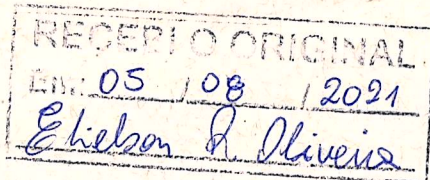 RECEBI O ORIGINAL
Em: 05 / 08 / 2021
Elielson R Oliveira